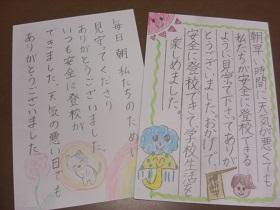 朝早い時間に天気が悪くても
私たちが安全に登校できる
ように見守て下さてありが
とうございました。おかげで、
安全に登校できて学校生活を
楽しめました。
毎日朝私たちのために
見守ってくださり
ありがとうございました。
いつも安全に登校が
できました。天気の悪い日でも
ありがとうございました。